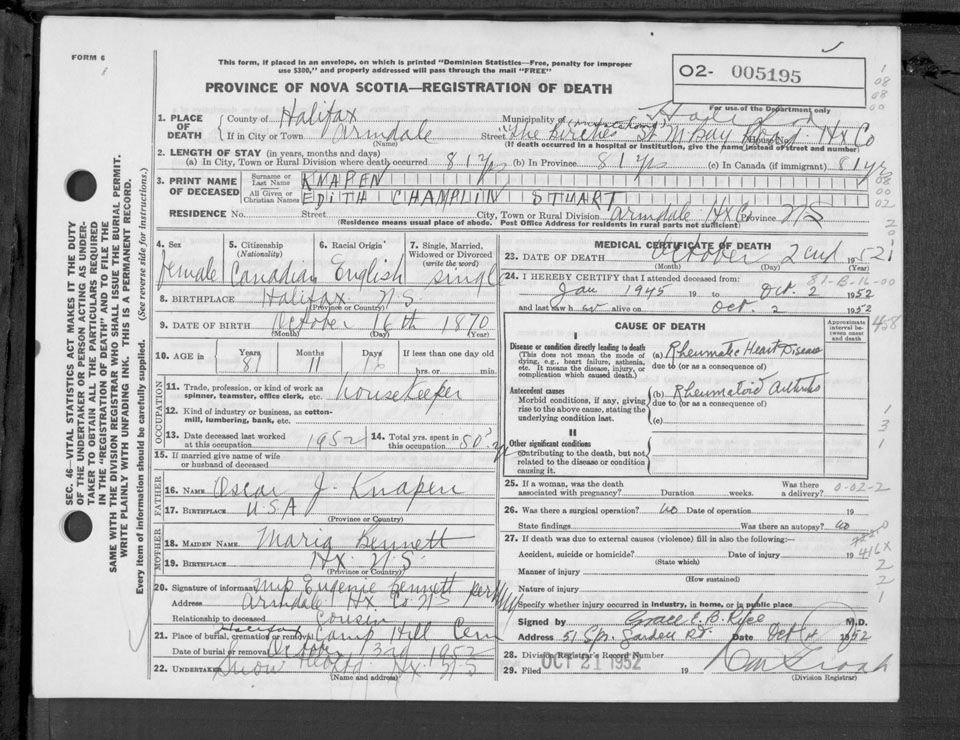 FORM 6
This form, if placed in an envelope, on which is printed "Dominion Statistics—Free, penalty for improper
use $300," and properly addressed will pass through the mail "FREE"
O2- 005195
PROVINCE OF NOVA SCOTIA—REGISTRATION OF DEATH
For use of the Department only
SEC. 46—VITAL STATISTICS ACT MAKES IT THE DUTY
OF THE UNDERTAKER OR PERSON ACTING AS UNDER-
TAKER TO OBTAIN ALL THE PARTICULARS REQUIRED
IN THE "REGISTRATION OF DEATH" AND TO FILE THE
SAME WITH THE DIVISION REGISTRAR WHO SHALL ISSUE THE BURIAL PERMIT.
WRITE PLAINLY WITH UNFADING INK. THIS IS A PERMANENT RECORD.
Every item of information should be carefully supplied. (See reverse side for instructions.)
1. PLACE OF DEATH
County of Halifax
Municipality of
If in City or Town Armdale Street The Birches St. M Bay Road Hx Co
(Name)
(If death occurred in a hospital or institution, give the name instead of street and number)
2. LENGTH OF STAY (in years, months and days)
(a) In City, Town or Rural Division where death occurred 81 yrs (b) In Province 81 yrs (c) In Canada (if immigrant) 81 yrs
3. PRINT NAME OF DECEASED
Surname or Last Name KNAPEN
All Given or Christian Names EDITH CHAMPLIN STUART
RESIDENCE No. Street City, Town or Rural Division Armdale Hx Co Province N S
(Residence means usual place of abode. Post Office Address for residents in rural parts not sufficient)
4. Sex
female
5. Citizenship (Nationality)
Canadian
6. Racial Origin
English
7. Single, Married, Widowed or Divorced (write the word)
single
8. BIRTHPLACE Halifax N.S
(Province or Country)
9. DATE OF BIRTH October 16th 1870
(Month) (Day) (Year)
10. AGE in Years Months Days If less than one day
81 11 16 hrs. or min.
OCCUPATION
11. Trade, profession, or kind of work as spinner, teamster, office clerk, etc. housekeeper
12. Kind of industry or business, as cotton-mill, lumbering, bank, etc.
13. Date deceased last worked at this occupation 1952
14. Total yrs. spent in this occupation 50 yrs
15. If married give name of wife or husband of deceased
FATHER
16. NAME Oscar J. Knapen
17. BIRTHPLACE U.S.A
(Province or Country)
MOTHER
18. MAIDEN NAME Maria Bennett
19. BIRTHPLACE Hx N.S
(Province or Country)
20. Signature of informant Miss Eugenie Bennett per
Address Armdale Hx. Co N S
Relationship to deceased Cousin
21. Place of burial, cremation or removal Halifax Camp Hill Cem
Date of burial or removal October 3rd 1952
22. UNDERTAKER Snow Hx N S
(Name and address)
MEDICAL CERTIFICATE OF DEATH
23. DATE OF DEATH October 2nd 1952
(Month) (Day) (Year)
24. I HEREBY CERTIFY that I attended deceased from:
Jan 1945 19 to Oct. 2 1952
and last saw her alive on Oct. 2 1952
CAUSE OF DEATH
Approximate interval between onset and death
I
Disease or condition directly leading to death
(This does not mean the mode of dying, e.g., heart failure, asthenia, etc. It means the disease, injury, or complication which caused death.)
(a) Rheumatic Heart Disease
due to (or as a consequence of)
Antecedent causes
Morbid conditions, if any, giving rise to the above cause, stating the underlying condition last.
(b) Rheumatoid Arthritis
due to (or as a consequence of)
(c)
II
Other significant conditions
contributing to the death, but not related to the disease or condition causing it.
25. If a woman, was the death associated with pregnancy? Duration weeks. Was there a delivery? 0-02-2
26. Was there a surgical operation? no Date of operation 19
State findings Was there an autopsy? no
27. If death was due to external causes (violence) fill in also the following:—
Accident, suicide or homicide? Date of injury 19
(State which)
416X
Manner of injury
(How sustained)
Nature of injury
Specify whether injury occurred in industry, in home, or in public place
Signed by Grace E. B. Rice M.D.
Address 51 Spr. Garden Rd. Date Oct 4 1952
28. Division Registrar's Record Number
29. Filed OCT 21 1952 19
(Division Registrar)